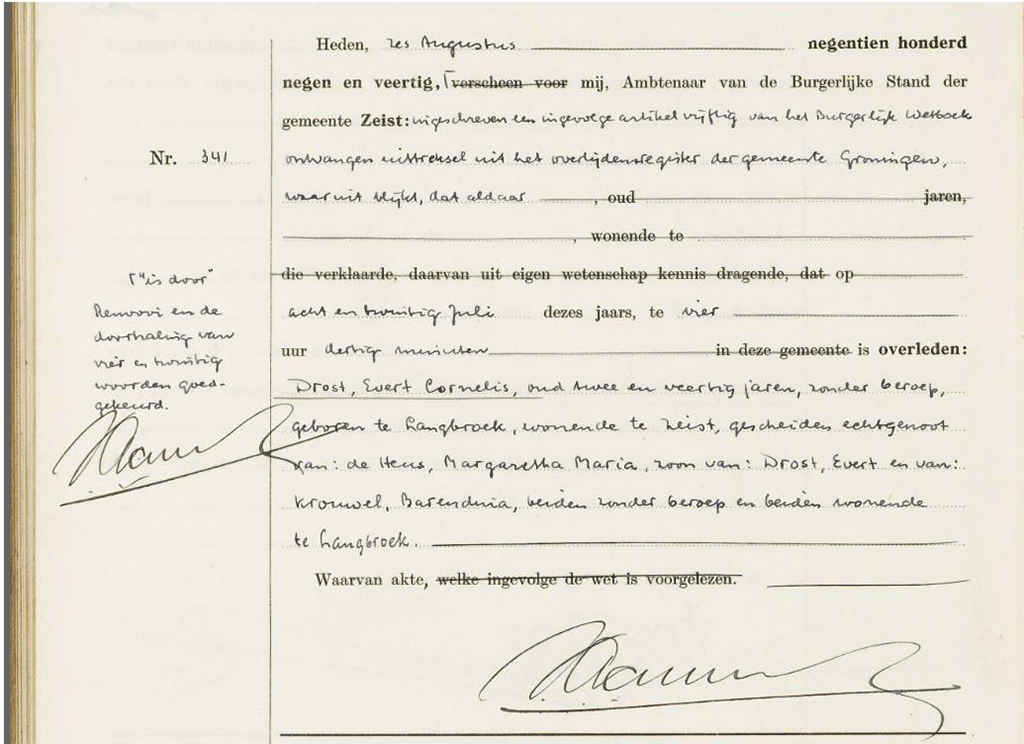 Heden, zes Augustus negentien honderd
negen en veertig, Γ verscheen voor mij, Ambtenaar van de Burgerlijke Stand der
gemeente Zeist: ingeschreven een ingevolge artikel vijftig van het Burgerlijk Wetboek
Nr. 341
ontvangen uittreksel uit het overlijdensregister der gemeente Groningen,
waaruit blijkt, dat aldaar , oud jaren,
, wonende te
die verklaarde, daarvan uit eigen wetenschap kennis dragende, dat op
Γ "is door"
Renvooi en de
doorhaling van
vier en twintig
woorden goed-
gekeurd.
acht en twintig Juli dezes jaars, te vier
uur dertig minuten in deze gemeente is overleden:
Drost, Evert Cornelis, oud twee en veertig jaren, zonder beroep,
geboren te Langbroek, wonende te Zeist, gescheiden echtgenoot
van: de Heus, Margaretha Maria, zoon van: Drost, Evert en van:
Krouwel, Barendina, beiden zonder beroep en beiden wonende
te Langbroek.
Waarvan akte, welke ingevolge de wet is voorgelezen.